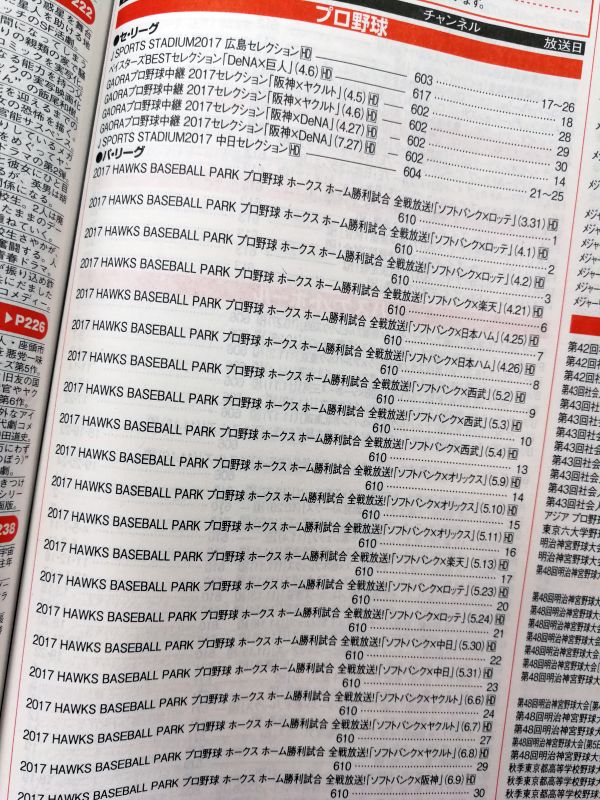 プロ野球
チャンネル
放送日
●セ・リーグ
J SPORTS STADIUM2017 広島セレクションHD 603 17~26
ベイスターズBESTセレクション「DeNA×巨人」(4.6)HD 617 18
GAORAプロ野球中継 2017セレクション「阪神×ヤクルト」(4.5)HD 602 28
GAORAプロ野球中継 2017セレクション「阪神×ヤクルト」(4.6)HD 602 29
GAORAプロ野球中継 2017セレクション「阪神×DeNA」(4.27)HD 602 30
GAORAプロ野球中継 2017セレクション「阪神×DeNA」(7.27)HD 602 14
J SPORTS STADIUM2017 中日セレクションHD 604 21~25
●パ・リーグ
2017 HAWKS BASEBALL PARK プロ野球 ホークス ホーム勝利試合 全戦放送!「ソフトバンク×ロッテ」(3.31)HD
610 1
2017 HAWKS BASEBALL PARK プロ野球 ホークス ホーム勝利試合 全戦放送!「ソフトバンク×ロッテ」(4.1)HD
610 2
2017 HAWKS BASEBALL PARK プロ野球 ホークス ホーム勝利試合 全戦放送!「ソフトバンク×ロッテ」(4.2)HD
610 3
2017 HAWKS BASEBALL PARK プロ野球 ホークス ホーム勝利試合 全戦放送!「ソフトバンク×楽天」(4.21)HD
610 6
2017 HAWKS BASEBALL PARK プロ野球 ホークス ホーム勝利試合 全戦放送!「ソフトバンク×日本ハム」(4.25)HD
610 7
2017 HAWKS BASEBALL PARK プロ野球 ホークス ホーム勝利試合 全戦放送!「ソフトバンク×日本ハム」(4.26)HD
610 8
2017 HAWKS BASEBALL PARK プロ野球 ホークス ホーム勝利試合 全戦放送!「ソフトバンク×西武」(5.2)HD
610 9
2017 HAWKS BASEBALL PARK プロ野球 ホークス ホーム勝利試合 全戦放送!「ソフトバンク×西武」(5.3)HD
610 10
2017 HAWKS BASEBALL PARK プロ野球 ホークス ホーム勝利試合 全戦放送!「ソフトバンク×西武」(5.4)HD
610 13
2017 HAWKS BASEBALL PARK プロ野球 ホークス ホーム勝利試合 全戦放送!「ソフトバンク×オリックス」(5.9)HD
610 14
2017 HAWKS BASEBALL PARK プロ野球 ホークス ホーム勝利試合 全戦放送!「ソフトバンク×オリックス」(5.10)HD
610 15
2017 HAWKS BASEBALL PARK プロ野球 ホークス ホーム勝利試合 全戦放送!「ソフトバンク×オリックス」(5.11)HD
610 16
2017 HAWKS BASEBALL PARK プロ野球 ホークス ホーム勝利試合 全戦放送!「ソフトバンク×楽天」(5.13)HD
610 17
2017 HAWKS BASEBALL PARK プロ野球 ホークス ホーム勝利試合 全戦放送!「ソフトバンク×ロッテ」(5.23)HD
610 20
2017 HAWKS BASEBALL PARK プロ野球 ホークス ホーム勝利試合 全戦放送!「ソフトバンク×ロッテ」(5.24)HD
610 21
2017 HAWKS BASEBALL PARK プロ野球 ホークス ホーム勝利試合 全戦放送!「ソフトバンク×中日」(5.30)HD
610 22
2017 HAWKS BASEBALL PARK プロ野球 ホークス ホーム勝利試合 全戦放送!「ソフトバンク×中日」(5.31)HD
610 23
2017 HAWKS BASEBALL PARK プロ野球 ホークス ホーム勝利試合 全戦放送!「ソフトバンク×ヤクルト」(6.6)HD
610 24
2017 HAWKS BASEBALL PARK プロ野球 ホークス ホーム勝利試合 全戦放送!「ソフトバンク×ヤクルト」(6.7)HD
610 27
2017 HAWKS BASEBALL PARK プロ野球 ホークス ホーム勝利試合 全戦放送!「ソフトバンク×ヤクルト」(6.8)HD
610 29
2017 HAWKS BASEBALL PARK プロ野球 ホークス ホーム勝利試合 全戦放送!「ソフトバンク×阪神」(6.9)HD
610 30
222
▶P226
238
メジャー
メジャー
メジャー
第42回
第42回
第43回社会人
アジア プロ野
東京六大学野
明治神宮野球大
明治神宮野球大
第48回明治神宮野球大
秋季東京都高等学校野球
秋季東京都高等学校野球